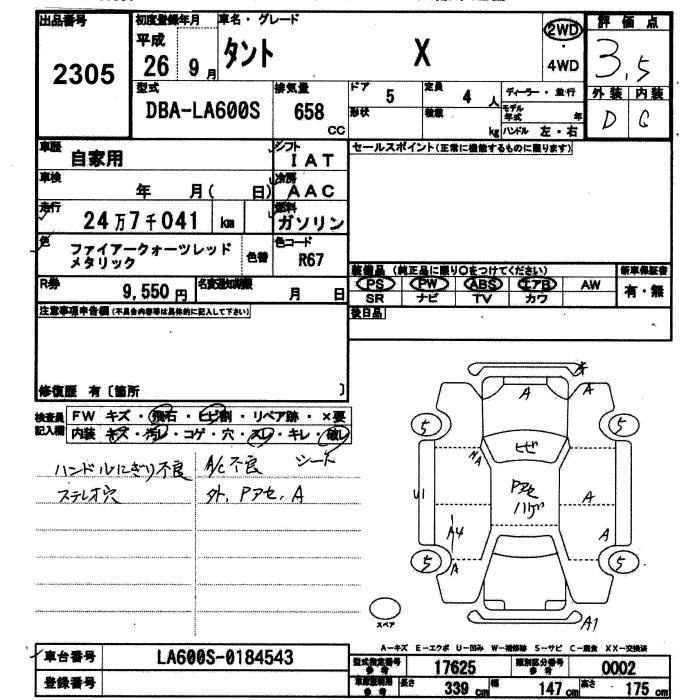 出品番号
2305
初度登録年月
平成
26 9月
車名・グレード
タント X
2WD
・
4WD
評価点
3.5
外装 内装
D C
型式
DBA-LA600S
排気量
658
CC
ドア
5
定員
4人
形状
積載
kg
ディーラー・並行
モデル年式 年
ハンドル 左・右
車歴
自家用
シフト
IAT
セールスポイント(正常に機能するものに限ります)
車検
年 月( 日)
冷房
AAC
走行
24万7千041 km
燃料
ガソリン
色
ファイアークォーツレッド
メタリック
色替
色コード
R67
装備品 (純正品に限り○をつけてください)
PS PW ABS エアB AW
SR ナビ TV カワ
新車保証書
有・無
R券
9,550円
名変通知期限
月 日
後日品
注意事項申告欄(不具合内容等は具体的に記入して下さい)
修復歴 有〔箇所 〕
検査員
記入欄
FW キズ・飛石・ヒビ割・リペア跡・×要
内装 キズ・汚レ・コゲ・穴・スレ・キレ・破レ
ハンドルにぎり不良 A/C不良 シート
ステレオ穴 外,Pアセ,A
A
A
5
5
ヒビ
NA
U1
Pアセ
ハゲ
A
A4
A
A
5
5
スペア
A1
A—キズ E—エクボ U—凹み W—補修跡 S—サビ C—腐食 XX—交換済
車台番号
LA600S-0184543
登録番号
型式指定番号
参考
17625
類別区分番号
参考
0002
車車輌寸法
参考
長さ
339cm
幅
147cm
高さ
175cm